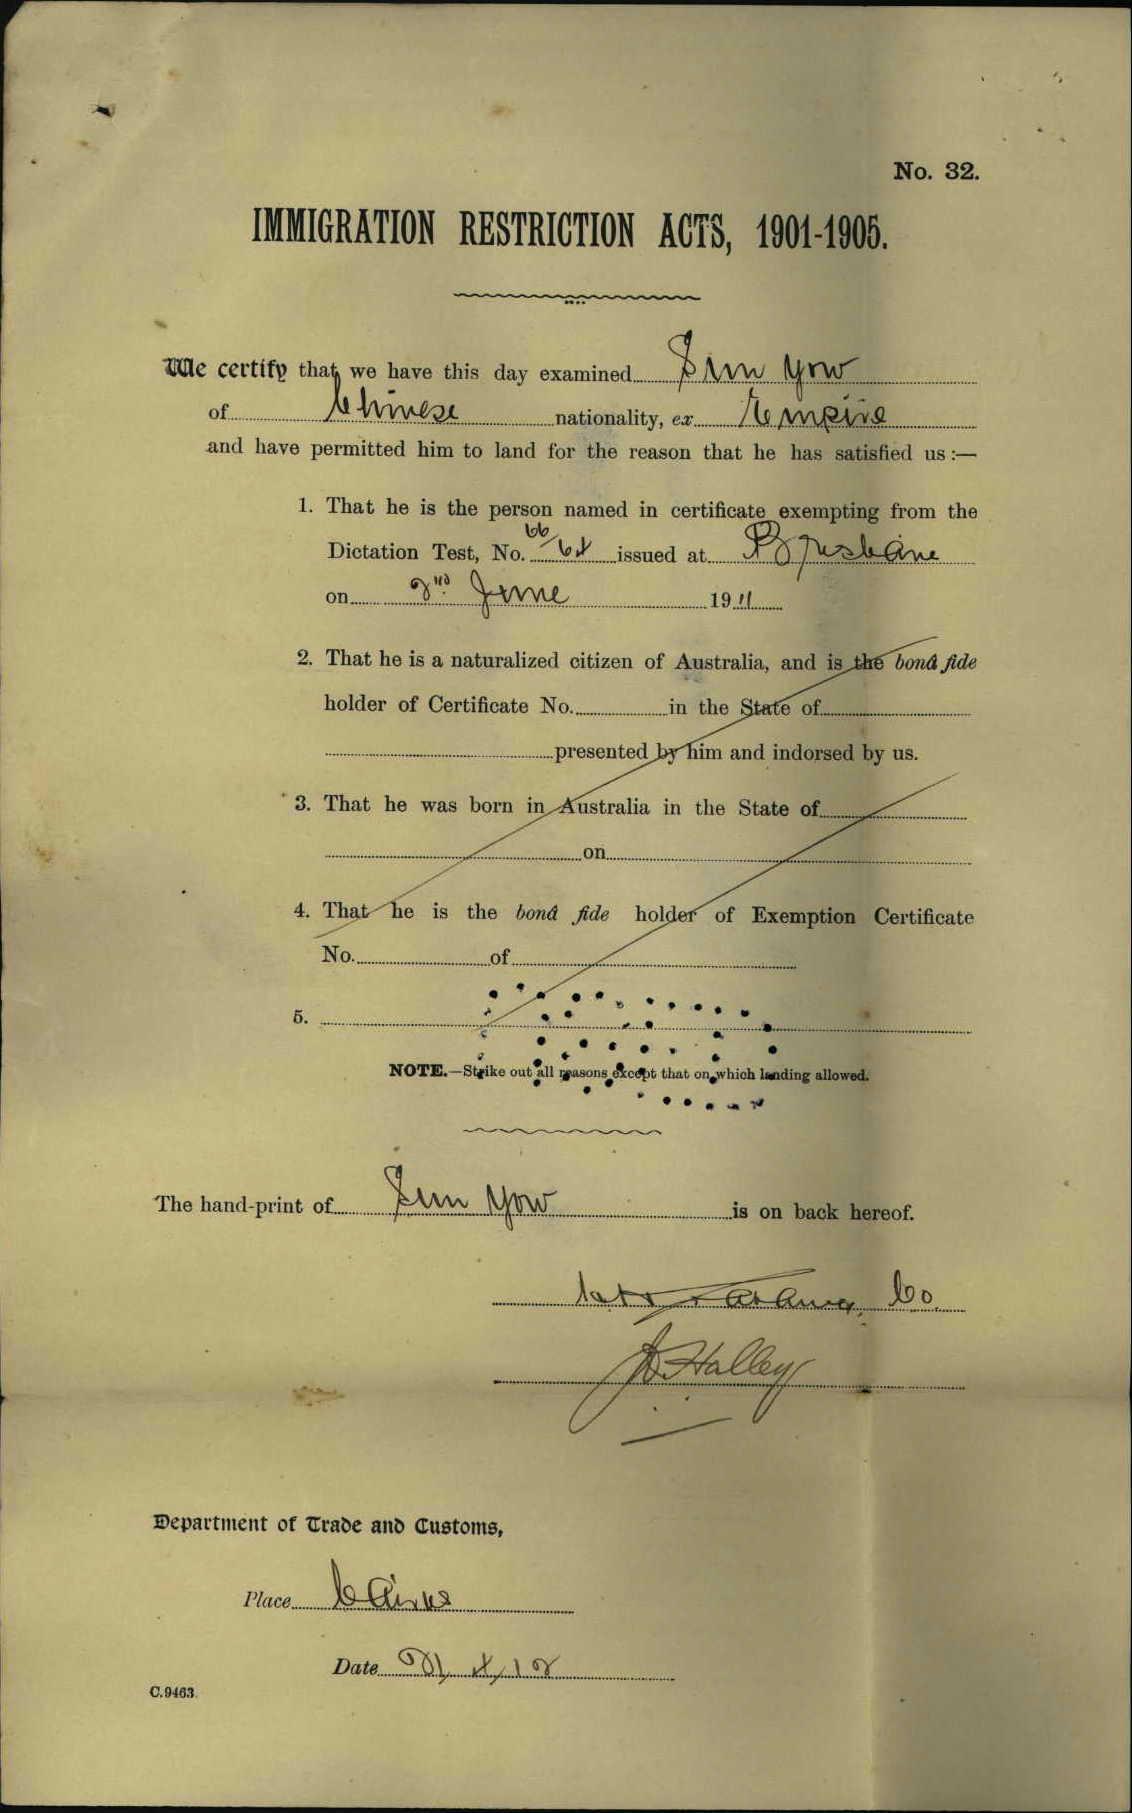 No. 32.
IMMIGRATION RESTRICTION ACTS, 1901-1905.
We certify that we have this day examined Sun Yow
of Chinese nationality, ex Empire
and have permitted him to land for the reason that he has satisfied us :—
1. That he is the person named in certificate exempting from the
66/
Dictation Test, No. issued at Brisbane
on 2nd June 1911
2. That he is a naturalized citizen of Australia, and is the bonâ fide
holder of Certificate No. in the State of
presented by him and indorsed by us.
3. That he was born in Australia in the State of
on
4. That he is the bonâ fide holder of Exemption Certificate
No. of
5.
NOTE.—Strike out all reasons except that on which landing allowed.
The hand-print of Sun Yow is on back hereof.
Co.
Halley
Department of Trade and Customs,
Place Cairns
Date 21/4/12
C.9463.